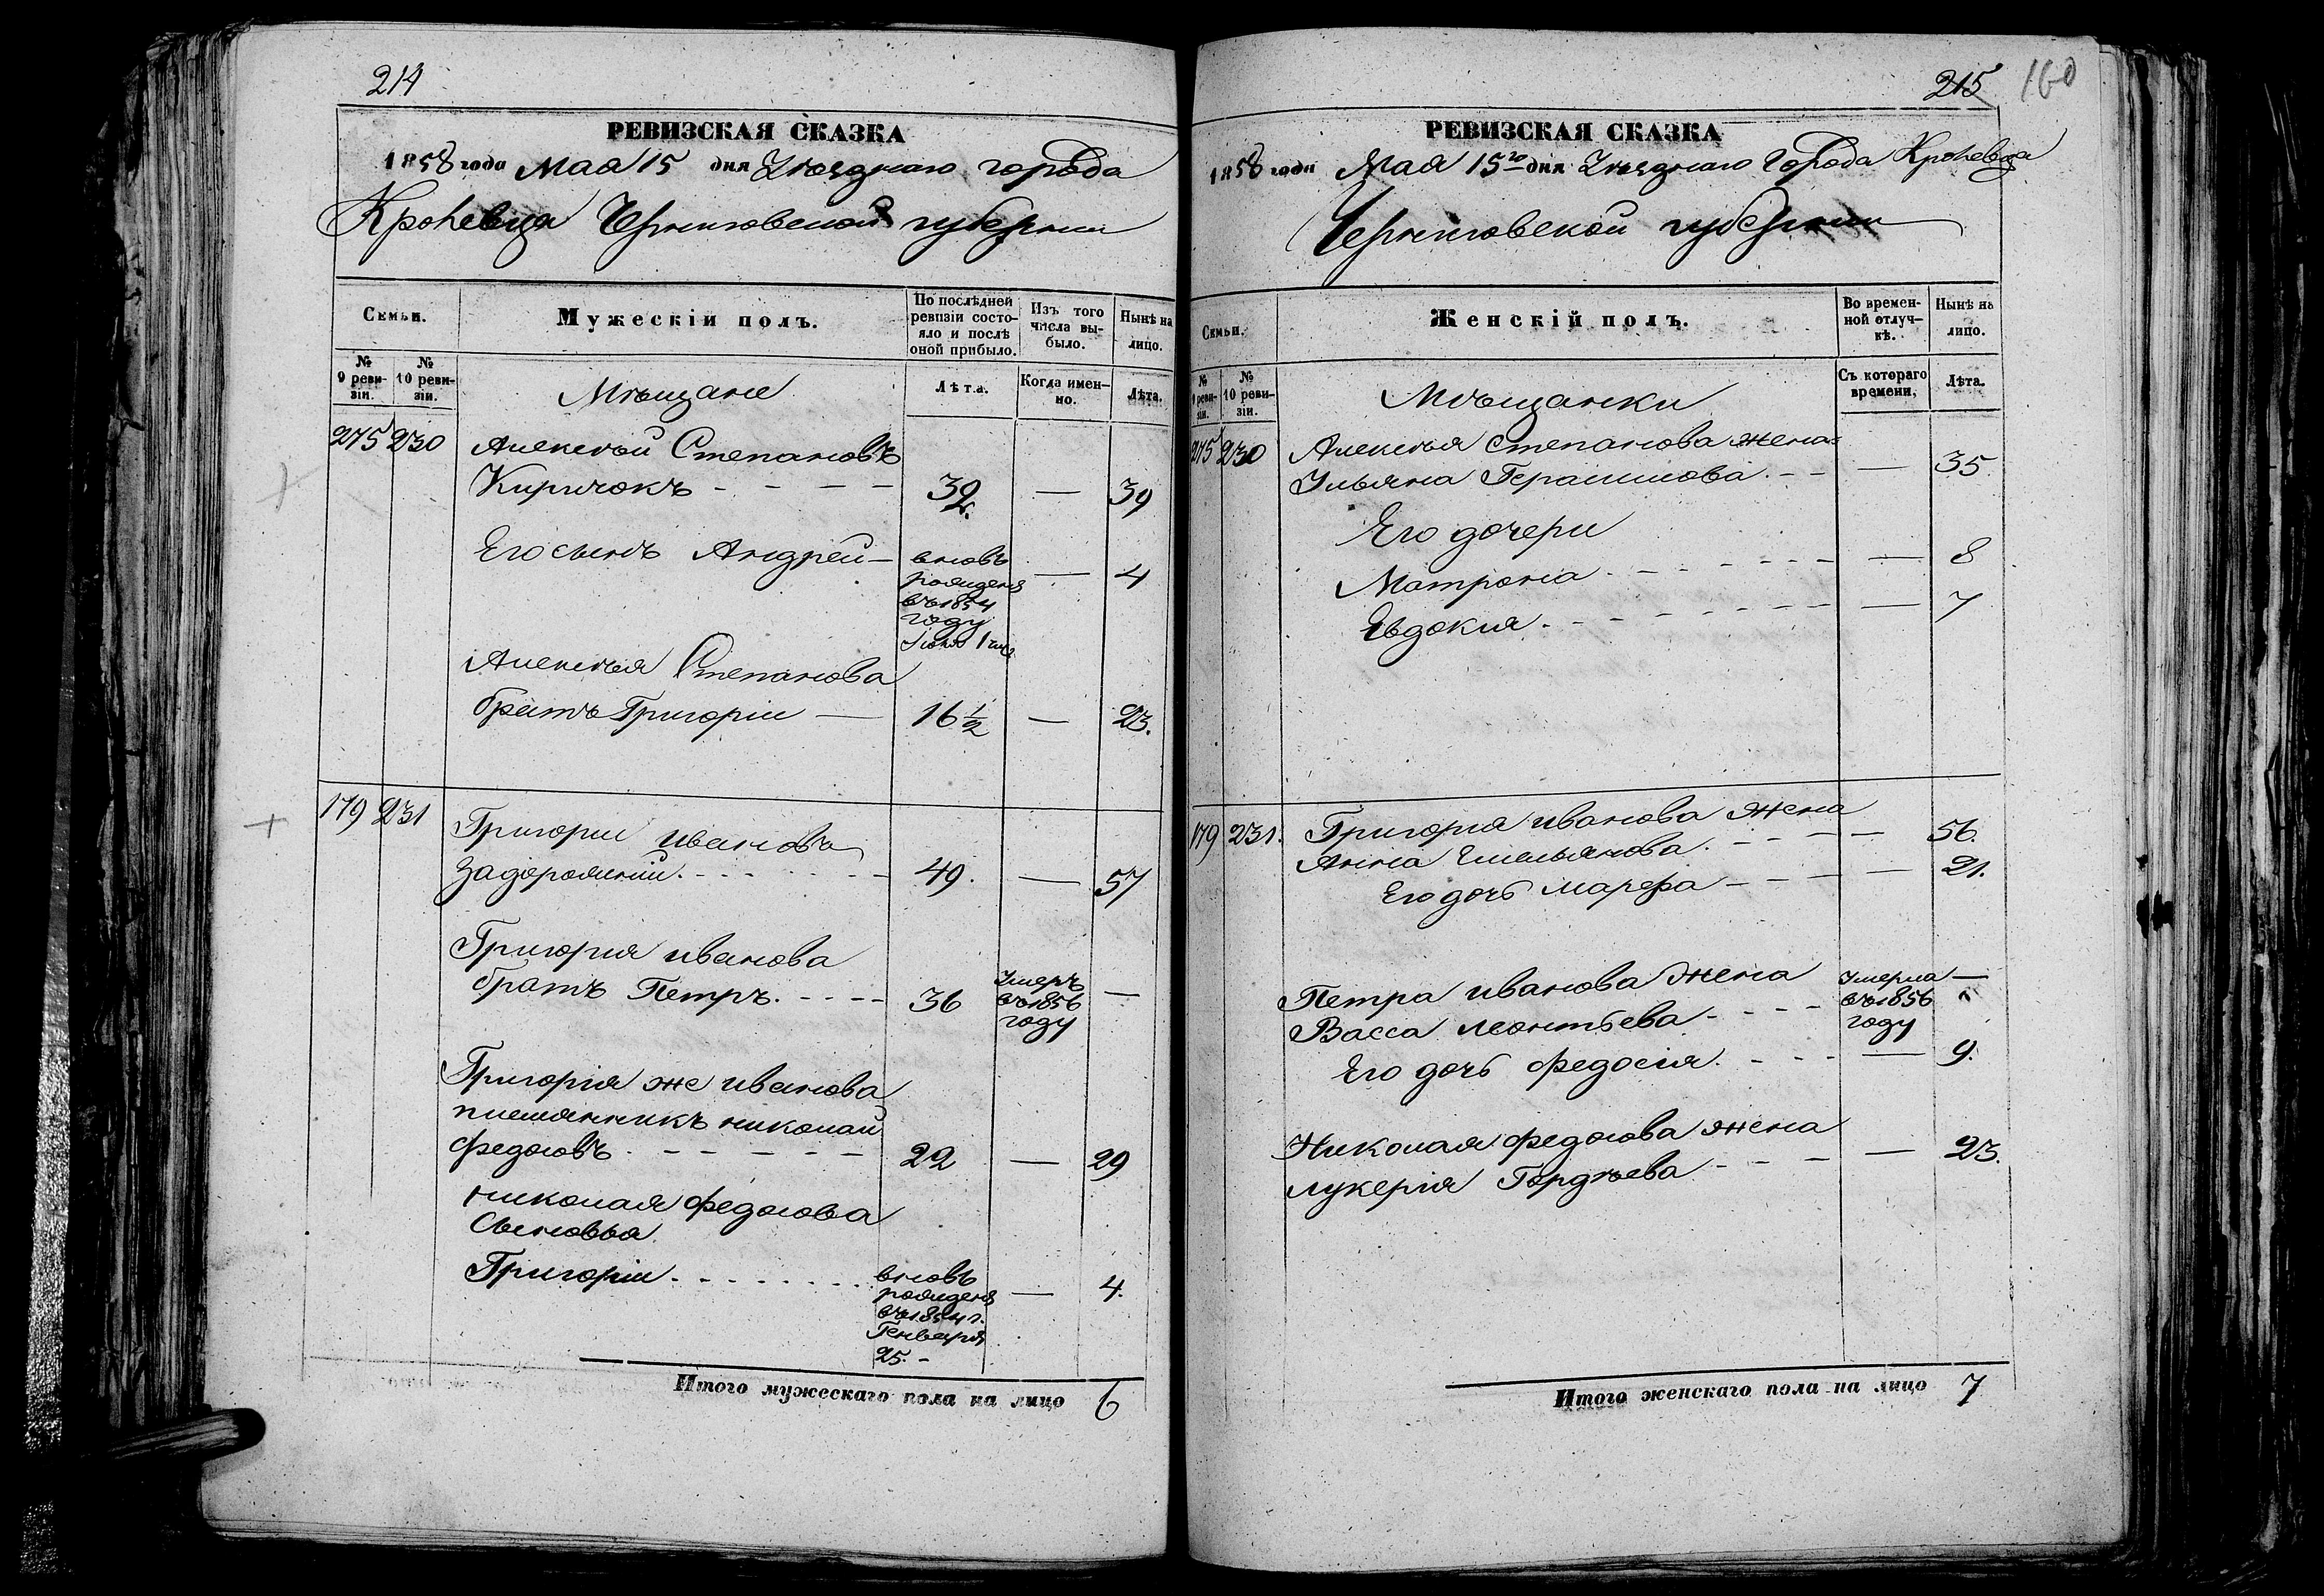 214
РЕВИЗСКАЯ СКАЗКА
1858 года Мая 15 дня Уѣзднаго города
Кролевца Черниговской губерніи
Семьи.
Мужескій полъ.
По послѣдней ревизіи состояло и послѣ оной прибыло.
Изъ того числа выбыло.
Нынѣ на лицо.
№ 9 ревизіи.
№ 10 ревизіи.
Мѣщане
Лѣта.
Когда именно.
Лѣта.
275 230 Алексѣй Степановъ
Киричокъ - - - - 32. — 39
Его сынъ Андрей — вновь — 4
рожденъ
въ 1854
году
Алексѣя Степанова
братъ Григорій — 16 1/2 — 23.
179 231 Григорій Ивановъ
Задорожній. - - - - - - 49. — 57
Григорія Иванова
братъ Петръ. - - - - 36 Умеръ —
въ 1856
году
Григорія же Иванова
племянникъ Николай
Федоровъ. - - - - - 22 — 29
Николая Федорова
Сыновья
Григорій. - - - - - - - вновь — 4.
рожденъ
въ 1854 г.
Генваря
25. -
Итого мужескаго пола на лицо 6
215 160
РЕВИЗСКАЯ СКАЗКА
1858 года Мая 15го дня Уѣзднаго Города Кролевца
Черниговской губерніи
Семьи.
Женскій полъ.
Во временной отлучкѣ.
Нынѣ на лицо.
№ 9 ревизіи.
№ 10 ревизіи.
Мѣщанки
Съ котораго времени.
Лѣта.
275 230 Алексѣя Степанова жена
Ульяна Герасимова. - - — 35
Его дочери
Матрона. - - - - - - — 8
Евдокия. - - - - - - — 7
179 231. Григория Иванова жена
Анна Емельянова. - - - — 56.
Его дочь Марефа - - - — 21.
Петра Иванова жена Умерла —
Васса Леонтьева - - - - въ 1856
году
Его дочь Федосія. - - - — 9.
Николая Федорова жена
Лукерія Гордѣева - - - — 23.
Итого женскаго пола на лицо 7